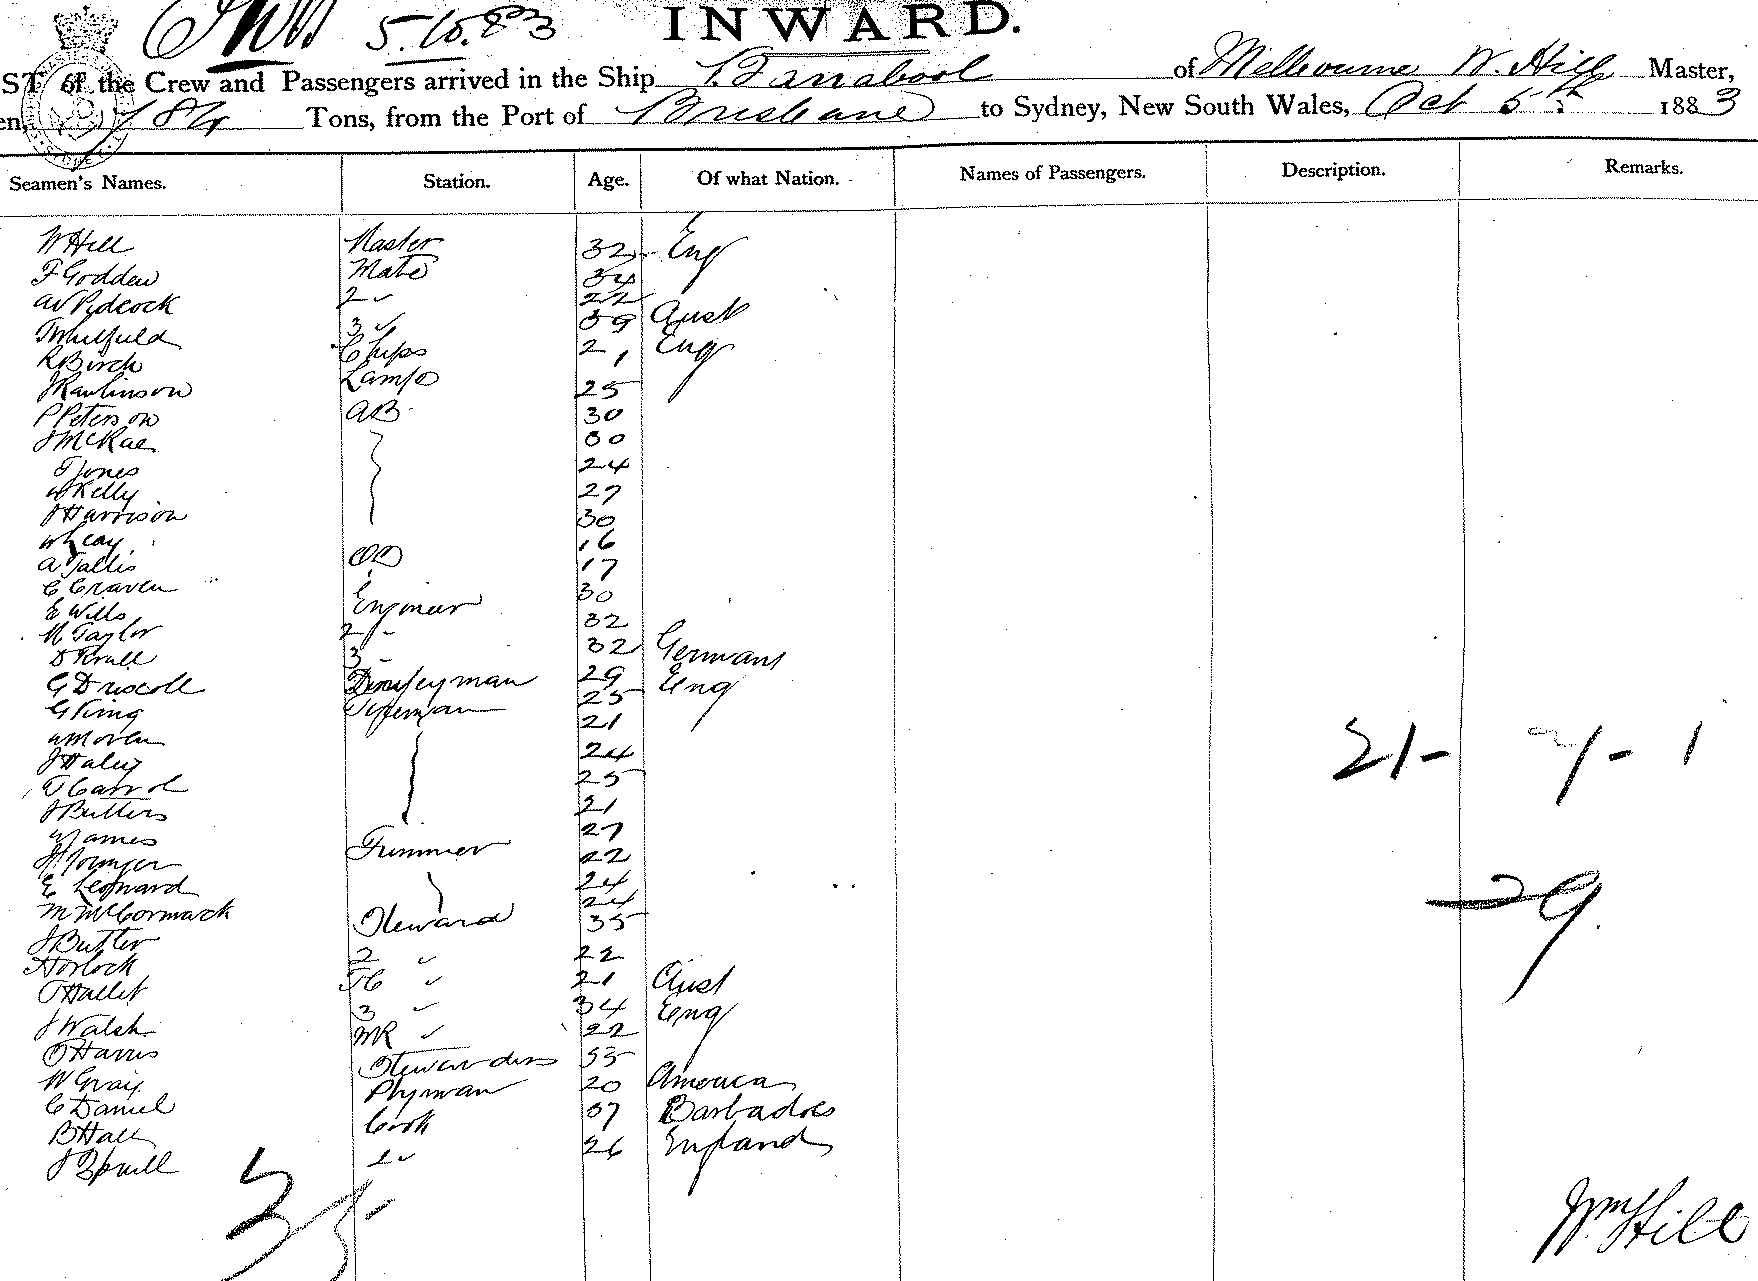 5.10.83 INWARD.
ST of the Crew and Passengers arrived in the Ship Barrabool of Melbourne W. Hill Master,
Tons, from the Port of Brisbane to Sydney, New South Wales, Oct 5th 1883
Seamen's Names. Station. Age. Of what Nation. Names of Passengers. Description. Remarks.
W Hill Master 32 Eng
F Goddew Mate 34
W Pidcock 2 " 22
3 " 39 Aust
R Birch Chips 21 Eng
J Rawlinson Lamps 25
P Peterson AB 30
J McRae 30
T Jones 24
W Kelly 27
J Harrison 30
W Leay 16
A Tallis OD 17
C Craven 30
E Wills Engineer 32
M Taylor 2 " 32 Germany
D Krull 3 "
G Driscoll Donkeyman 29 Eng
G King Fireman 25
W Moven 21
J Haley 24
T Carrol 25
J Butters 21
W James 27
H Younger Trimmer 22
E Leonard 24
M McCormack 24
J Butler Steward 35
Horlock 2 " 22
T Hallet 21 Aust
J Walsh 3 " 34 Eng
O Harris 22
W Gray Stewardess 35
C Daniel 20 America
B Hall Cook 37 Barbados
J 2 " 26 England
21- 7- 1
29
35
Wm Hill